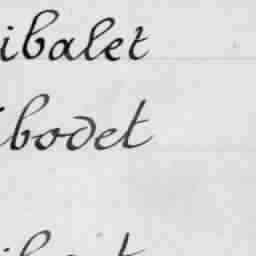 ibalet
ibodet